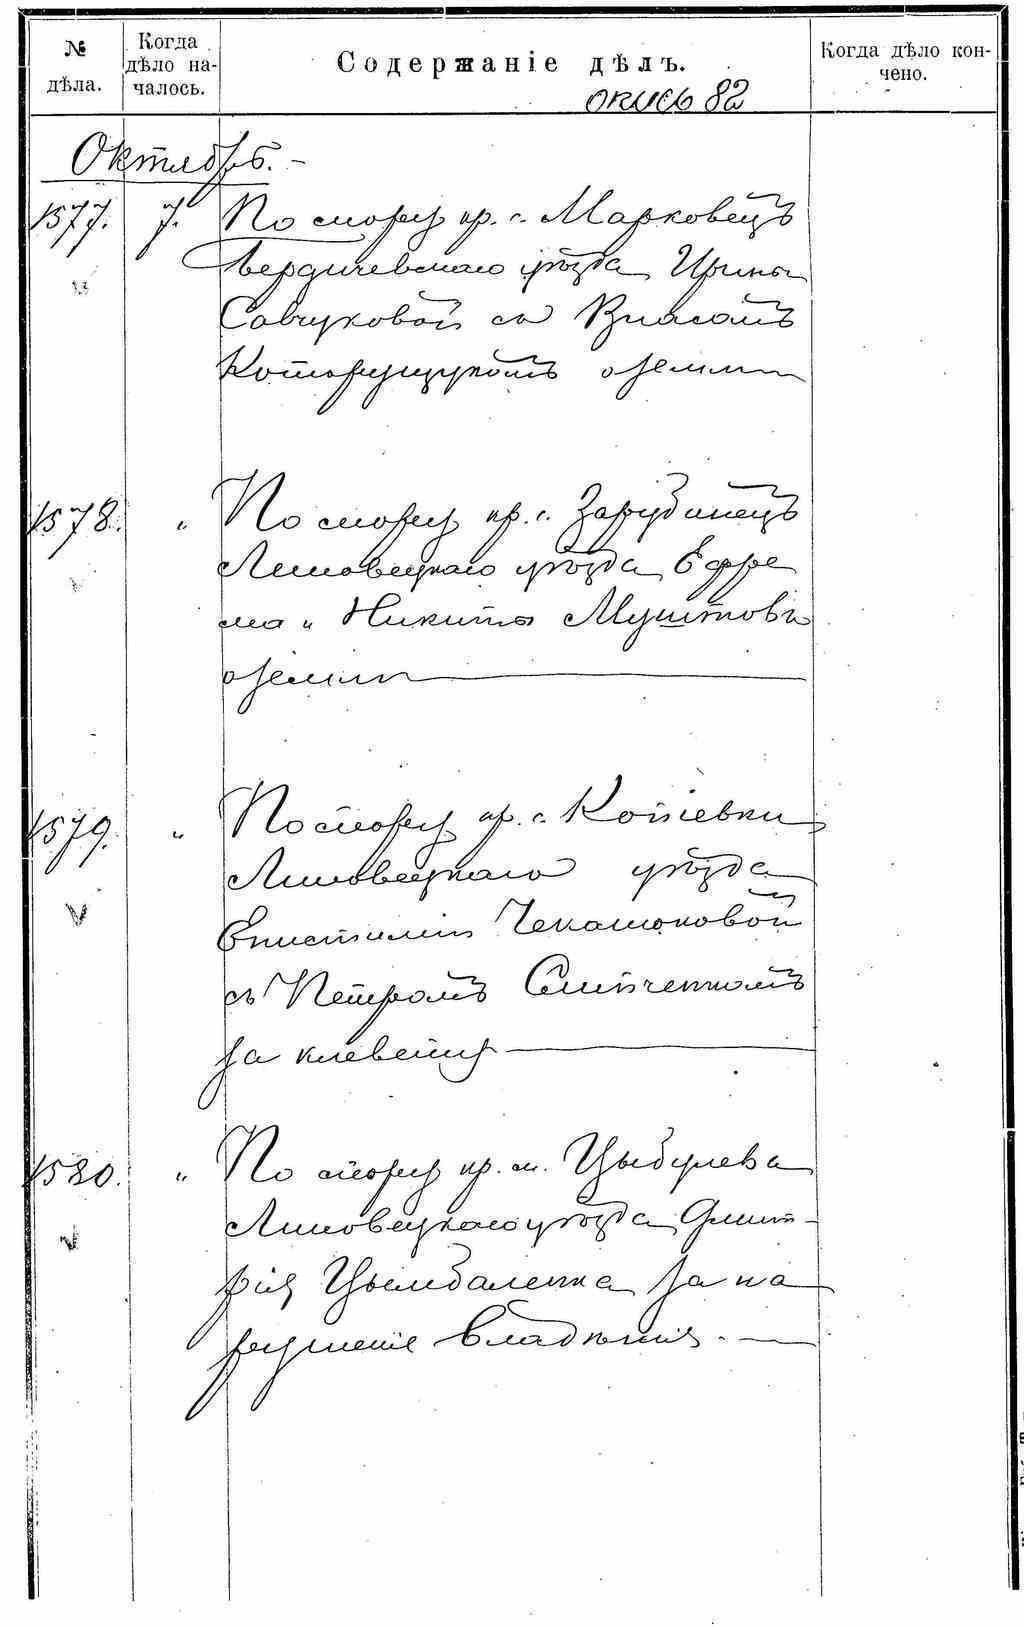 № дѣла.
Когда дѣло началось.
Содержаніе дѣлъ.
Когда дѣло кончено.
опись 82
Октябрь. -
1577. 7. По спору кр. с. Марковецъ
Бердичевскаго уѣзда Ирины
Савчуковой съ Власомъ
о земли
1578. " По спору кр. с. Зарубинецъ
Липовецкаго уѣзда Ефре
ма и Никиты
о земли
1579. " По спору кр. с. Копіевки
Липовецкаго уѣзда
Епистиміи
съ Петромъ
за клевету
1580. " По спору кр. м. Цыбулева
Липовецкаго уѣзда Дмит-
рія Цымбаленка за на
рушеніе владѣнія. -